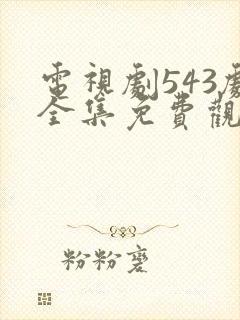 電視劇543
全集免費觀
粉粉